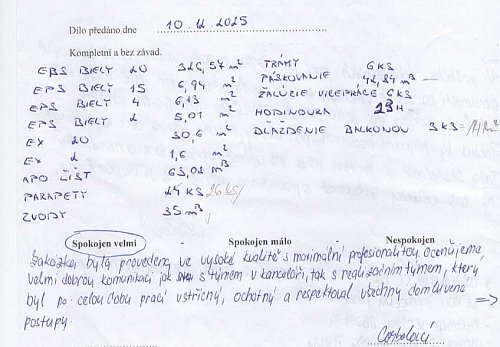 Dílo předáno dne 10.12.2025
Kompletní a bez závad.
EBS BIELY 20 326,57 m²
EPS BIELY 15 6,94 m²
EPS BIELY 4 6,13 m²
EPS BIELY 2 5,01 m²
EX 20 30,6 m²
EX 2 1,6 m²
APO LIŠT 63,02 mB
PARAPETY 24 KS 26 ks
ZVODY 35 mB
TRÁMY 6 KS
PÁSKOVANIE 42,84 mB
ŽALÚZIE VICEPRÁCE 6 KS
HODINOVKA 23 H
DLAŽDENIE BALKONOV 3 KS =
Spokojen velmi - Spokojen málo - Nespokojen
Zakázka byla provedena ve vysoké kvalitě s maximální profesionalitou. Oceňujeme
velmi dobrou komunikaci jak s týmem v kanceláři, tak s realizačním týmem, který
byl po celou dobu prací vstřícný, ochotný a respektoval všechny domluvené
postupy. =>